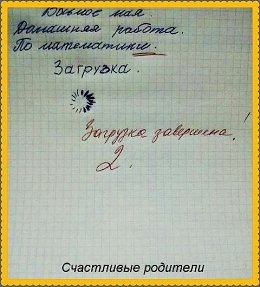 Восьмое мая
Домашняя работа.
По математике.
Загрузка.
Загрузка завершена!
2.
Счастливые родители